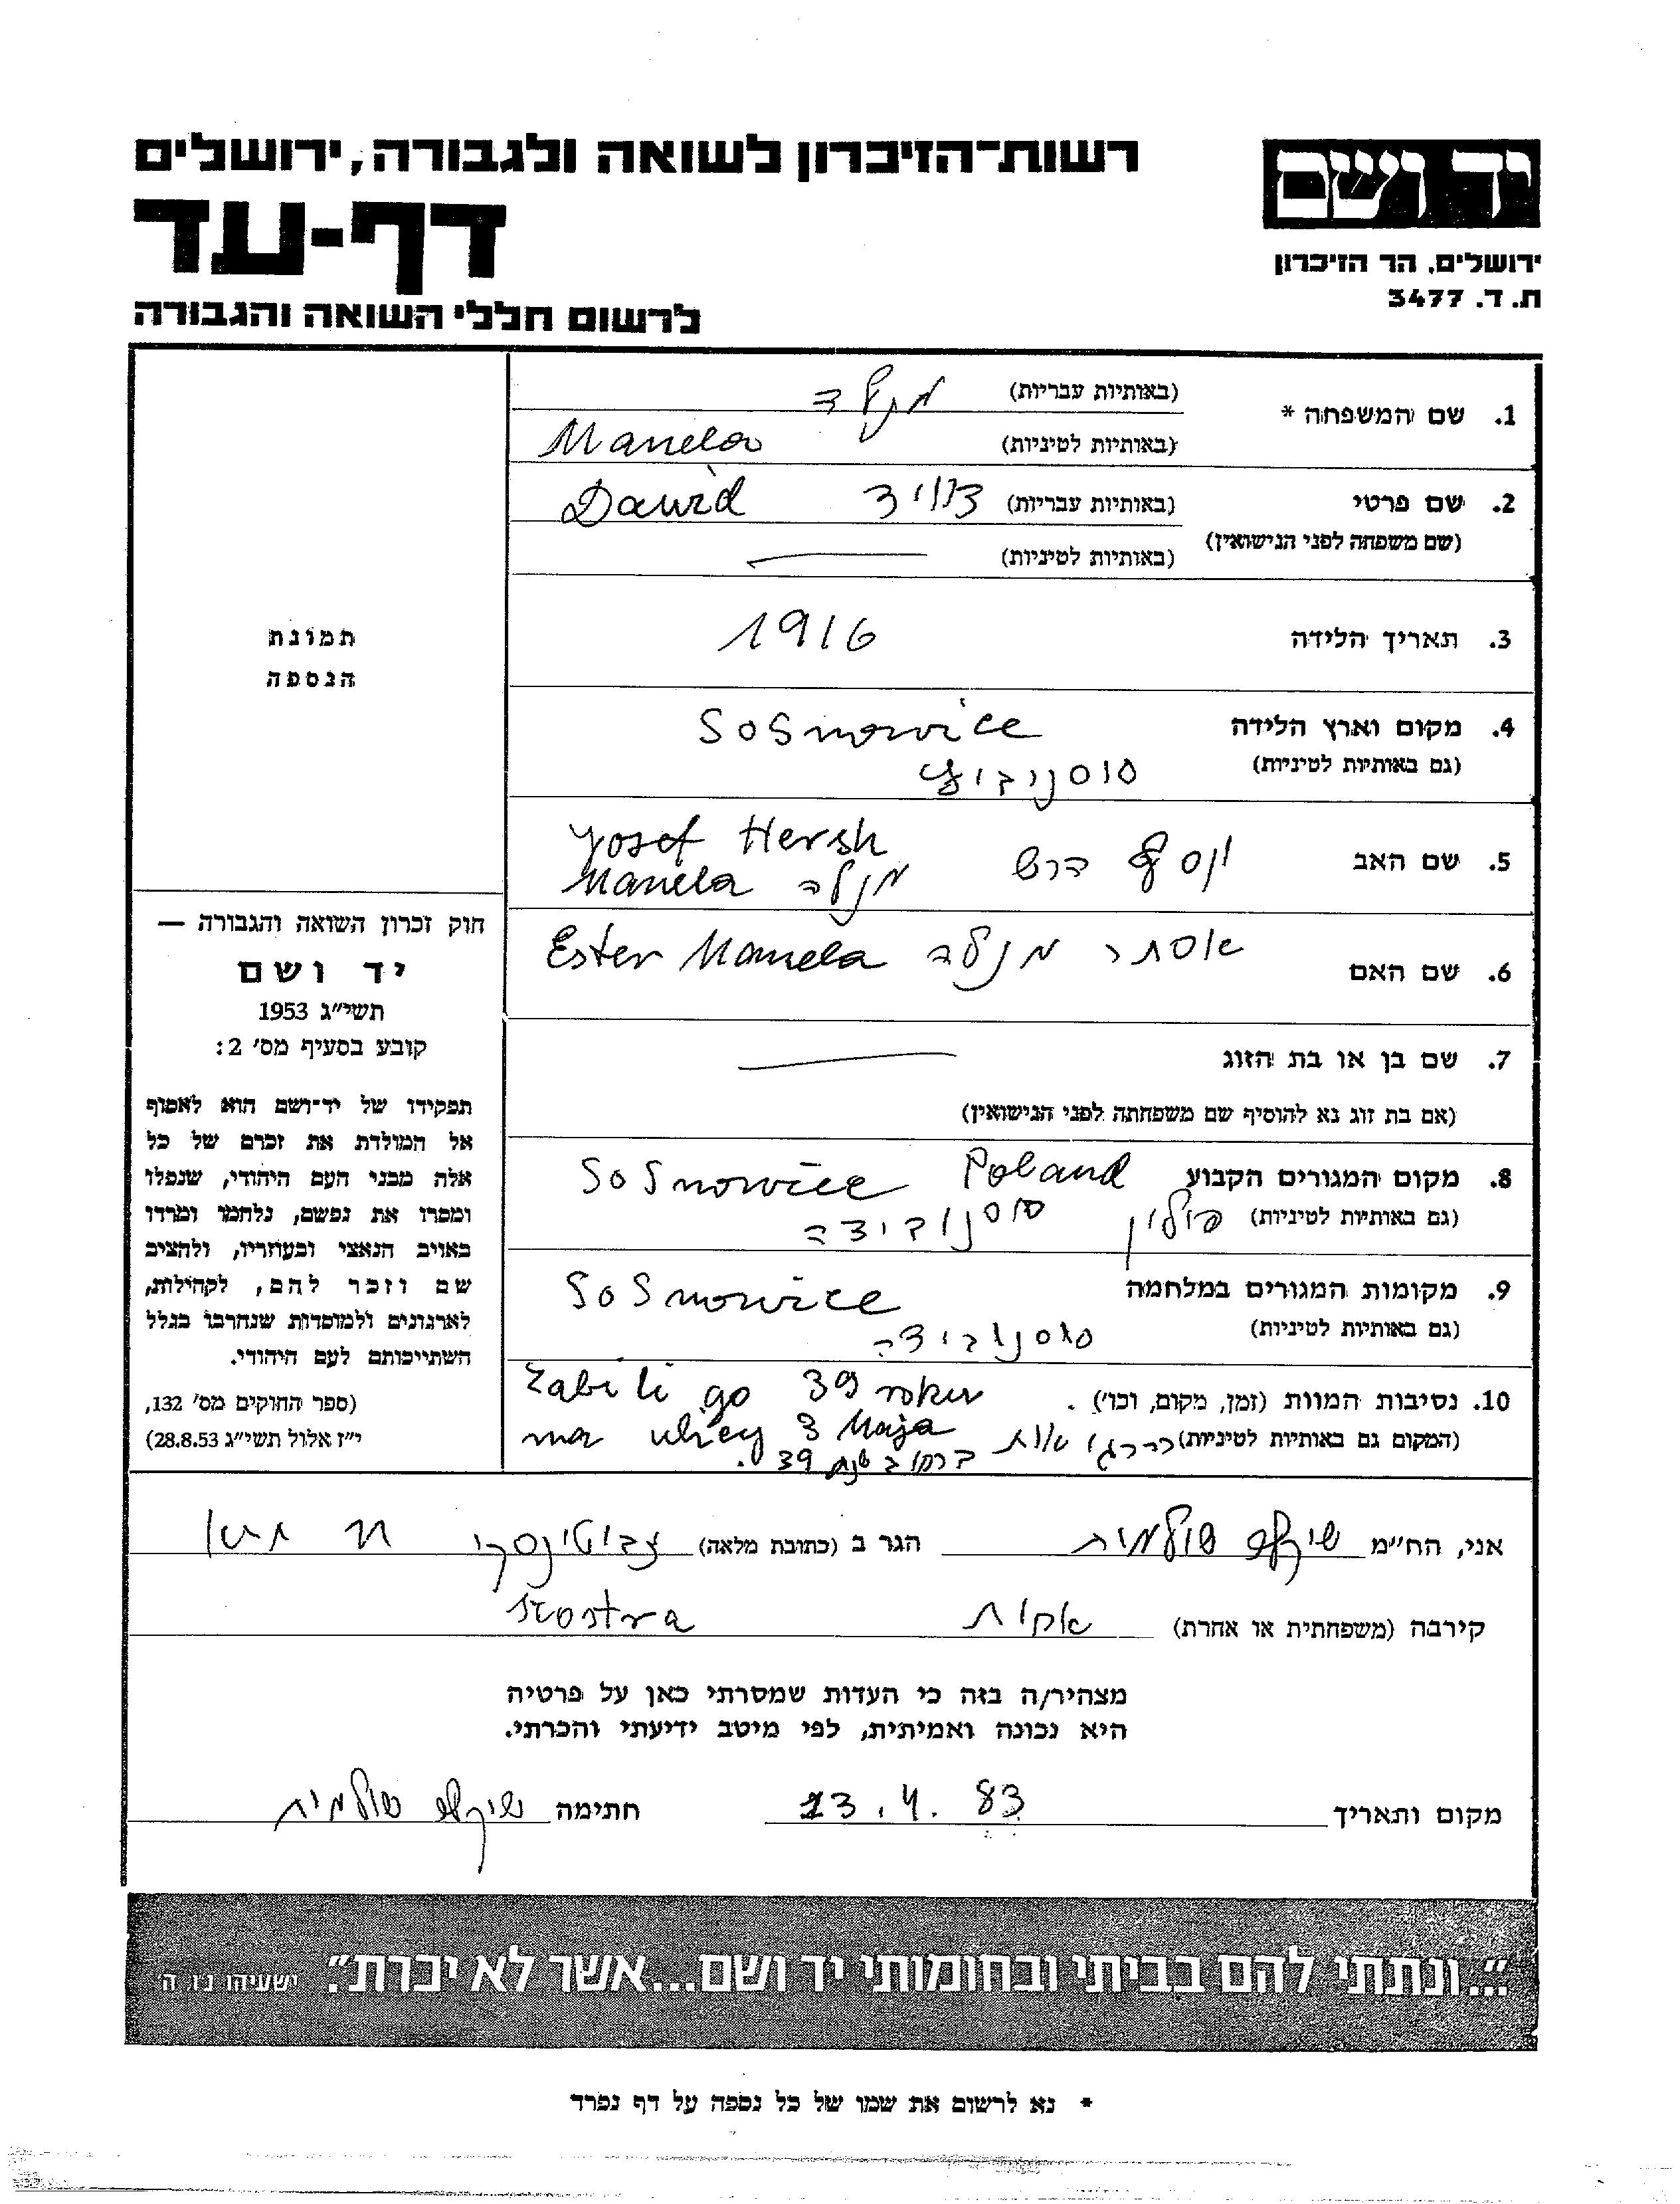 יד ושם
ירושלים, הר הזיכרון
ת. ד. 3477
רשות־הזיכרון לשואה ולגבורה, ירושלים
דף-עד
לרשום חללי השואה והגבורה
1. שם המשפחה *
(באותיות עבריות) מנלה
(באותיות לטיניות) Manela
2. שם פרטי (באותיות עבריות) דוויד Dawid
(שם משפחה לפני הנישואין)
(באותיות לטיניות) —
3. תאריך הלידה 1916
4. מקום וארץ הלידה Sosnowice
(גם באותיות לטיניות)
5. שם האב יוסף הרש Yosef Hersh
מנלה Manela
6. שם האם אסתר מנלה Ester Manela
7. שם בן או בת הזוג —
(אם בת זוג נא להוסיף שם משפחתה לפני הנישואין)
8. מקום המגורים הקבוע Sosnowice Poland
(גם באותיות לטיניות) פולין סוסנוביצה
9. מקומות המגורים במלחמה Sosnowice
(גם באותיות לטיניות) סוסנוביצה
10. נסיבות המוות (זמן, מקום, וכו'). Zabili go 39 roku
(המקום גם באותיות לטיניות) na ulicy 3 Maja
הרגו אותו ברחוב בשנת 39.
תמונת
הנספה
חוק זכרון השואה והגבורה —
יד ושם
תשי״ג 1953
קובע בסעיף מס׳ 2:
תפקידו של יד־ושם הוא לאסוף
אל המולדת את זכרם של כל
אלה מבני העם היהודי, שנפלו
ומסרו את נפשם, נלחמו ומרדו
באויב הנאצי ובעוזריו, ולהציב
שם וזכר להם, לקהילות,
לארגונים ולמוסדות שנחרבו בגלל
השתייכותם לעם היהודי.
(ספר החוקים מס׳ 132,
י״ז אלול תשי״ג 28.8.53)
אני, הח״מ שולמית הגר ב (כתובת מלאה) ז'בוטינסקי
קירבה (משפחתית או אחרת) אחות siostra
מצהיר/ה בזה כי העדות שמסרתי כאן על פרטיה
היא נכונה ואמיתית, לפי מיטב ידיעתי והכרתי.
מקום ותאריך 23.4.83 חתימה שולמית
״...ונתתי להם בביתי ובחומותי יד ושם...אשר לא יכרת״. ישעיהו נ״ו, ה
* נא לרשום את שמו של כל נספה על דף נפרד